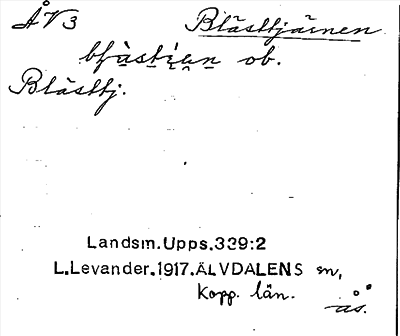 ÅV3 Blästtjärnen
ob.
Blästtj.
Landsm.Upps.339:2
L.Levander.1917.ÄLVDALENS sn,
Kopp. län.